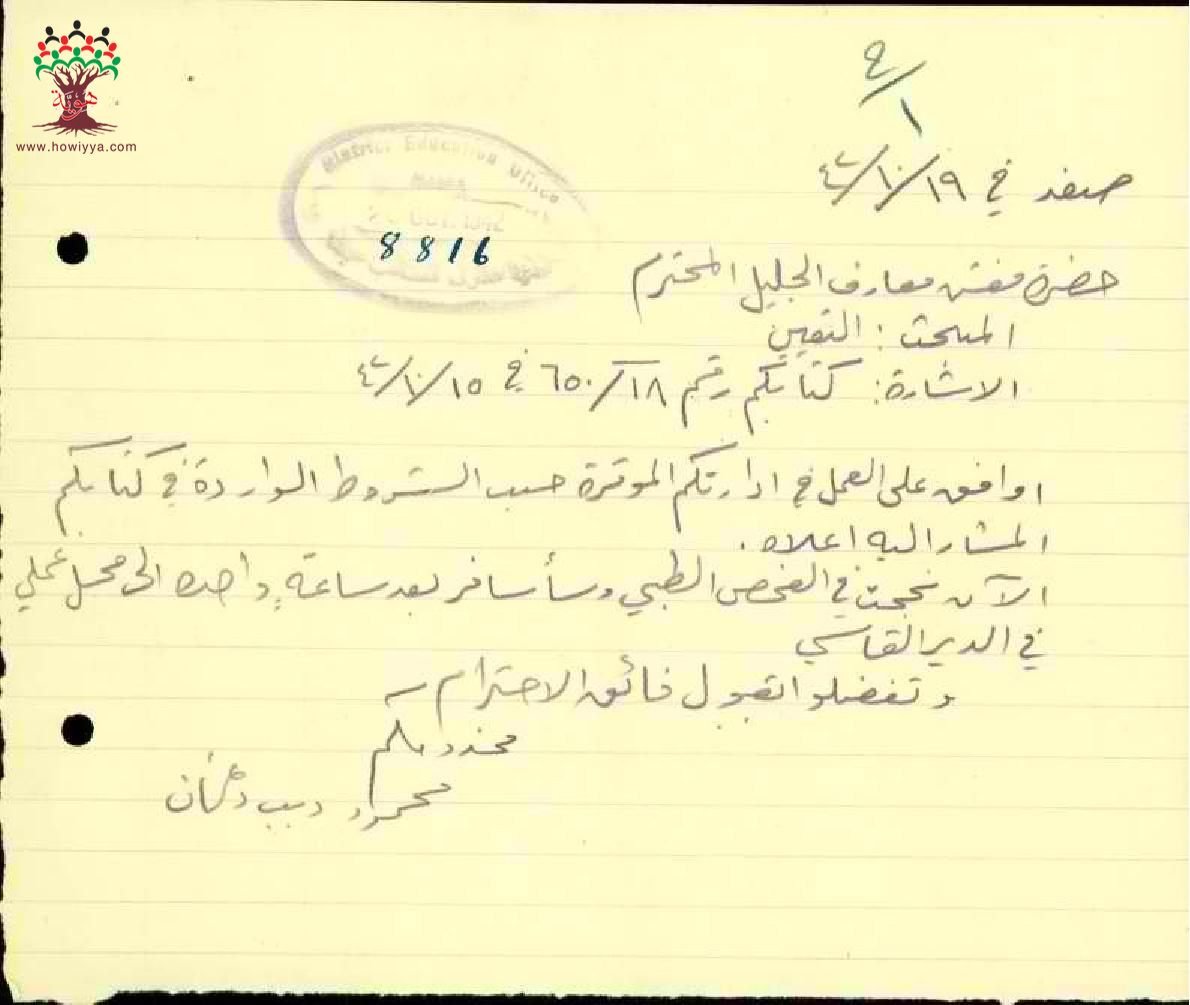 هوية
www.howiyya.com
٤/١
District Education Office
OCT. 1942
8816
صفد في ١٩/١٠/٤٢
حضرة مفتش معارف الجليل المحترم
المبحث : التعيين
الاشارة: كتابكم رقم ٦٥٠/١٨ في ١٥/١٠/٤٢
اوافق على العمل في ادارتكم الموقرة حسب الشروط الواردة في كتابكم
المشار اليه اعلاه .
الآن نجحت في الفحص الطبي وسأسافر بعد ساعة واحدة الى محل عملي
في الدير القاسي
وتفضلوا بقبول فائق الاحترام
محمود ديب دهمان